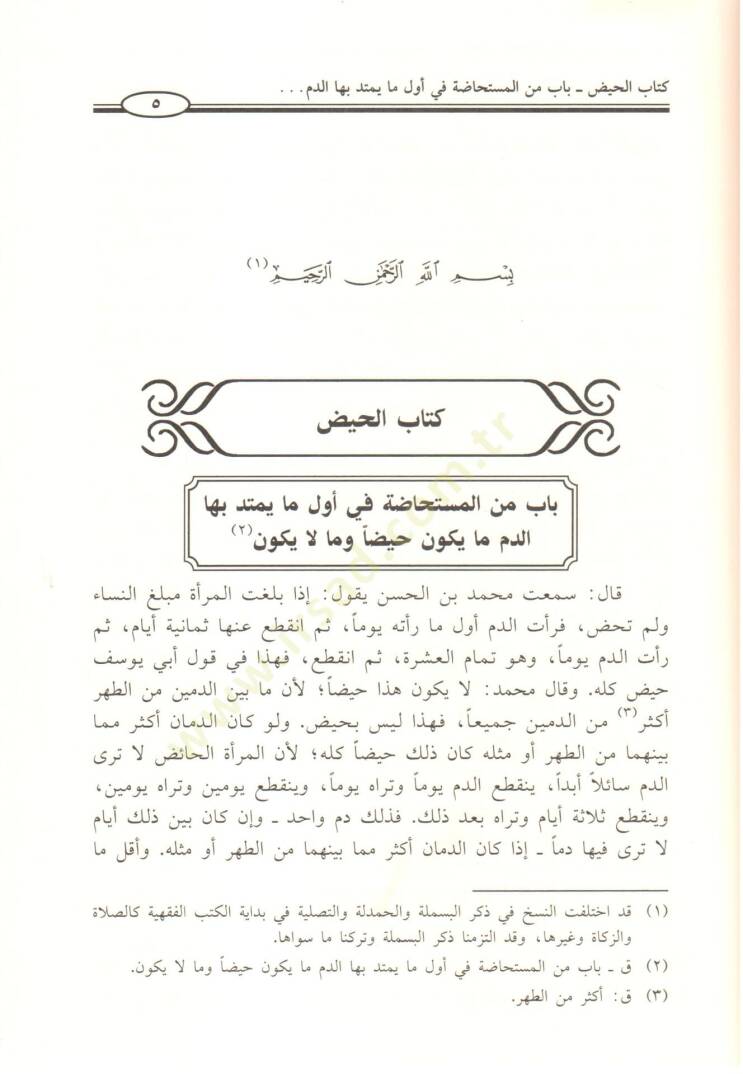 كتاب الحيض - باب من المستحاضة في أول ما يمتد بها الدم . . .
٥
بِسْمِ اللَّهِ الرَّحْمَٰنِ الرَّحِيمِ (١)
كتاب الحيض
باب من المستحاضة في أول ما يمتد بها
الدم ما يكون حيضاً وما لا يكون(٢)
قال: سمعت محمد بن الحسن يقول: إذا بلغت المرأة مبلغ النساء
ولم تحض، فرأت الدم أول ما رأته يوماً، ثم انقطع عنها ثمانية أيام، ثم
رأت الدم يوماً، وهو تمام العشرة، ثم انقطع، فهذا في قول أبي يوسف
حيض كله. وقال محمد: لا يكون هذا حيضاً؛ لأن ما بين الدمين من الطهر
أكثر(٣) من الدمين جميعاً، فهذا ليس بحيض. ولو كان الدمان أكثر مما
بينهما من الطهر أو مثله كان ذلك حيضاً كله؛ لأن المرأة الحائض لا ترى
الدم سائلاً أبداً، ينقطع الدم يوماً وتراه يوماً، وينقطع يومين وتراه يومين،
وينقطع ثلاثة أيام وتراه بعد ذلك. فذلك دم واحد - وإن كان بين ذلك أيام
لا ترى فيها دماً - إذا كان الدمان أكثر مما بينهما من الطهر أو مثله. وأقل ما
(١) قد اختلفت النسخ في ذكر البسملة والحمدلة والتصلية في بداية الكتب الفقهية كالصلاة
والزكاة وغيرها، وقد التزمنا ذكر البسملة وتركنا ما سواها.
(٢) ق - باب من المستحاضة في أول ما يمتد بها الدم ما يكون حيضاً وما لا يكون.
(٣) ق: أكثر من الطهر.
www.irsad.com.tr